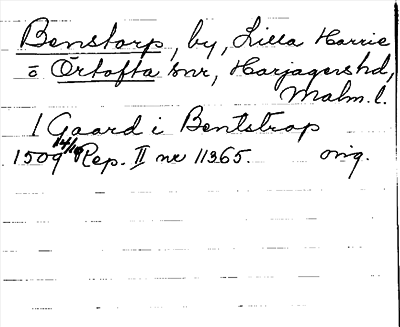 Benstorp, by, Lilla Harrie
o Örtofta snr, Harjagers hd,
Malm. l.
1 Gaard i Bentstrop
1509 14/10 Rep. II nr 11365. orig.